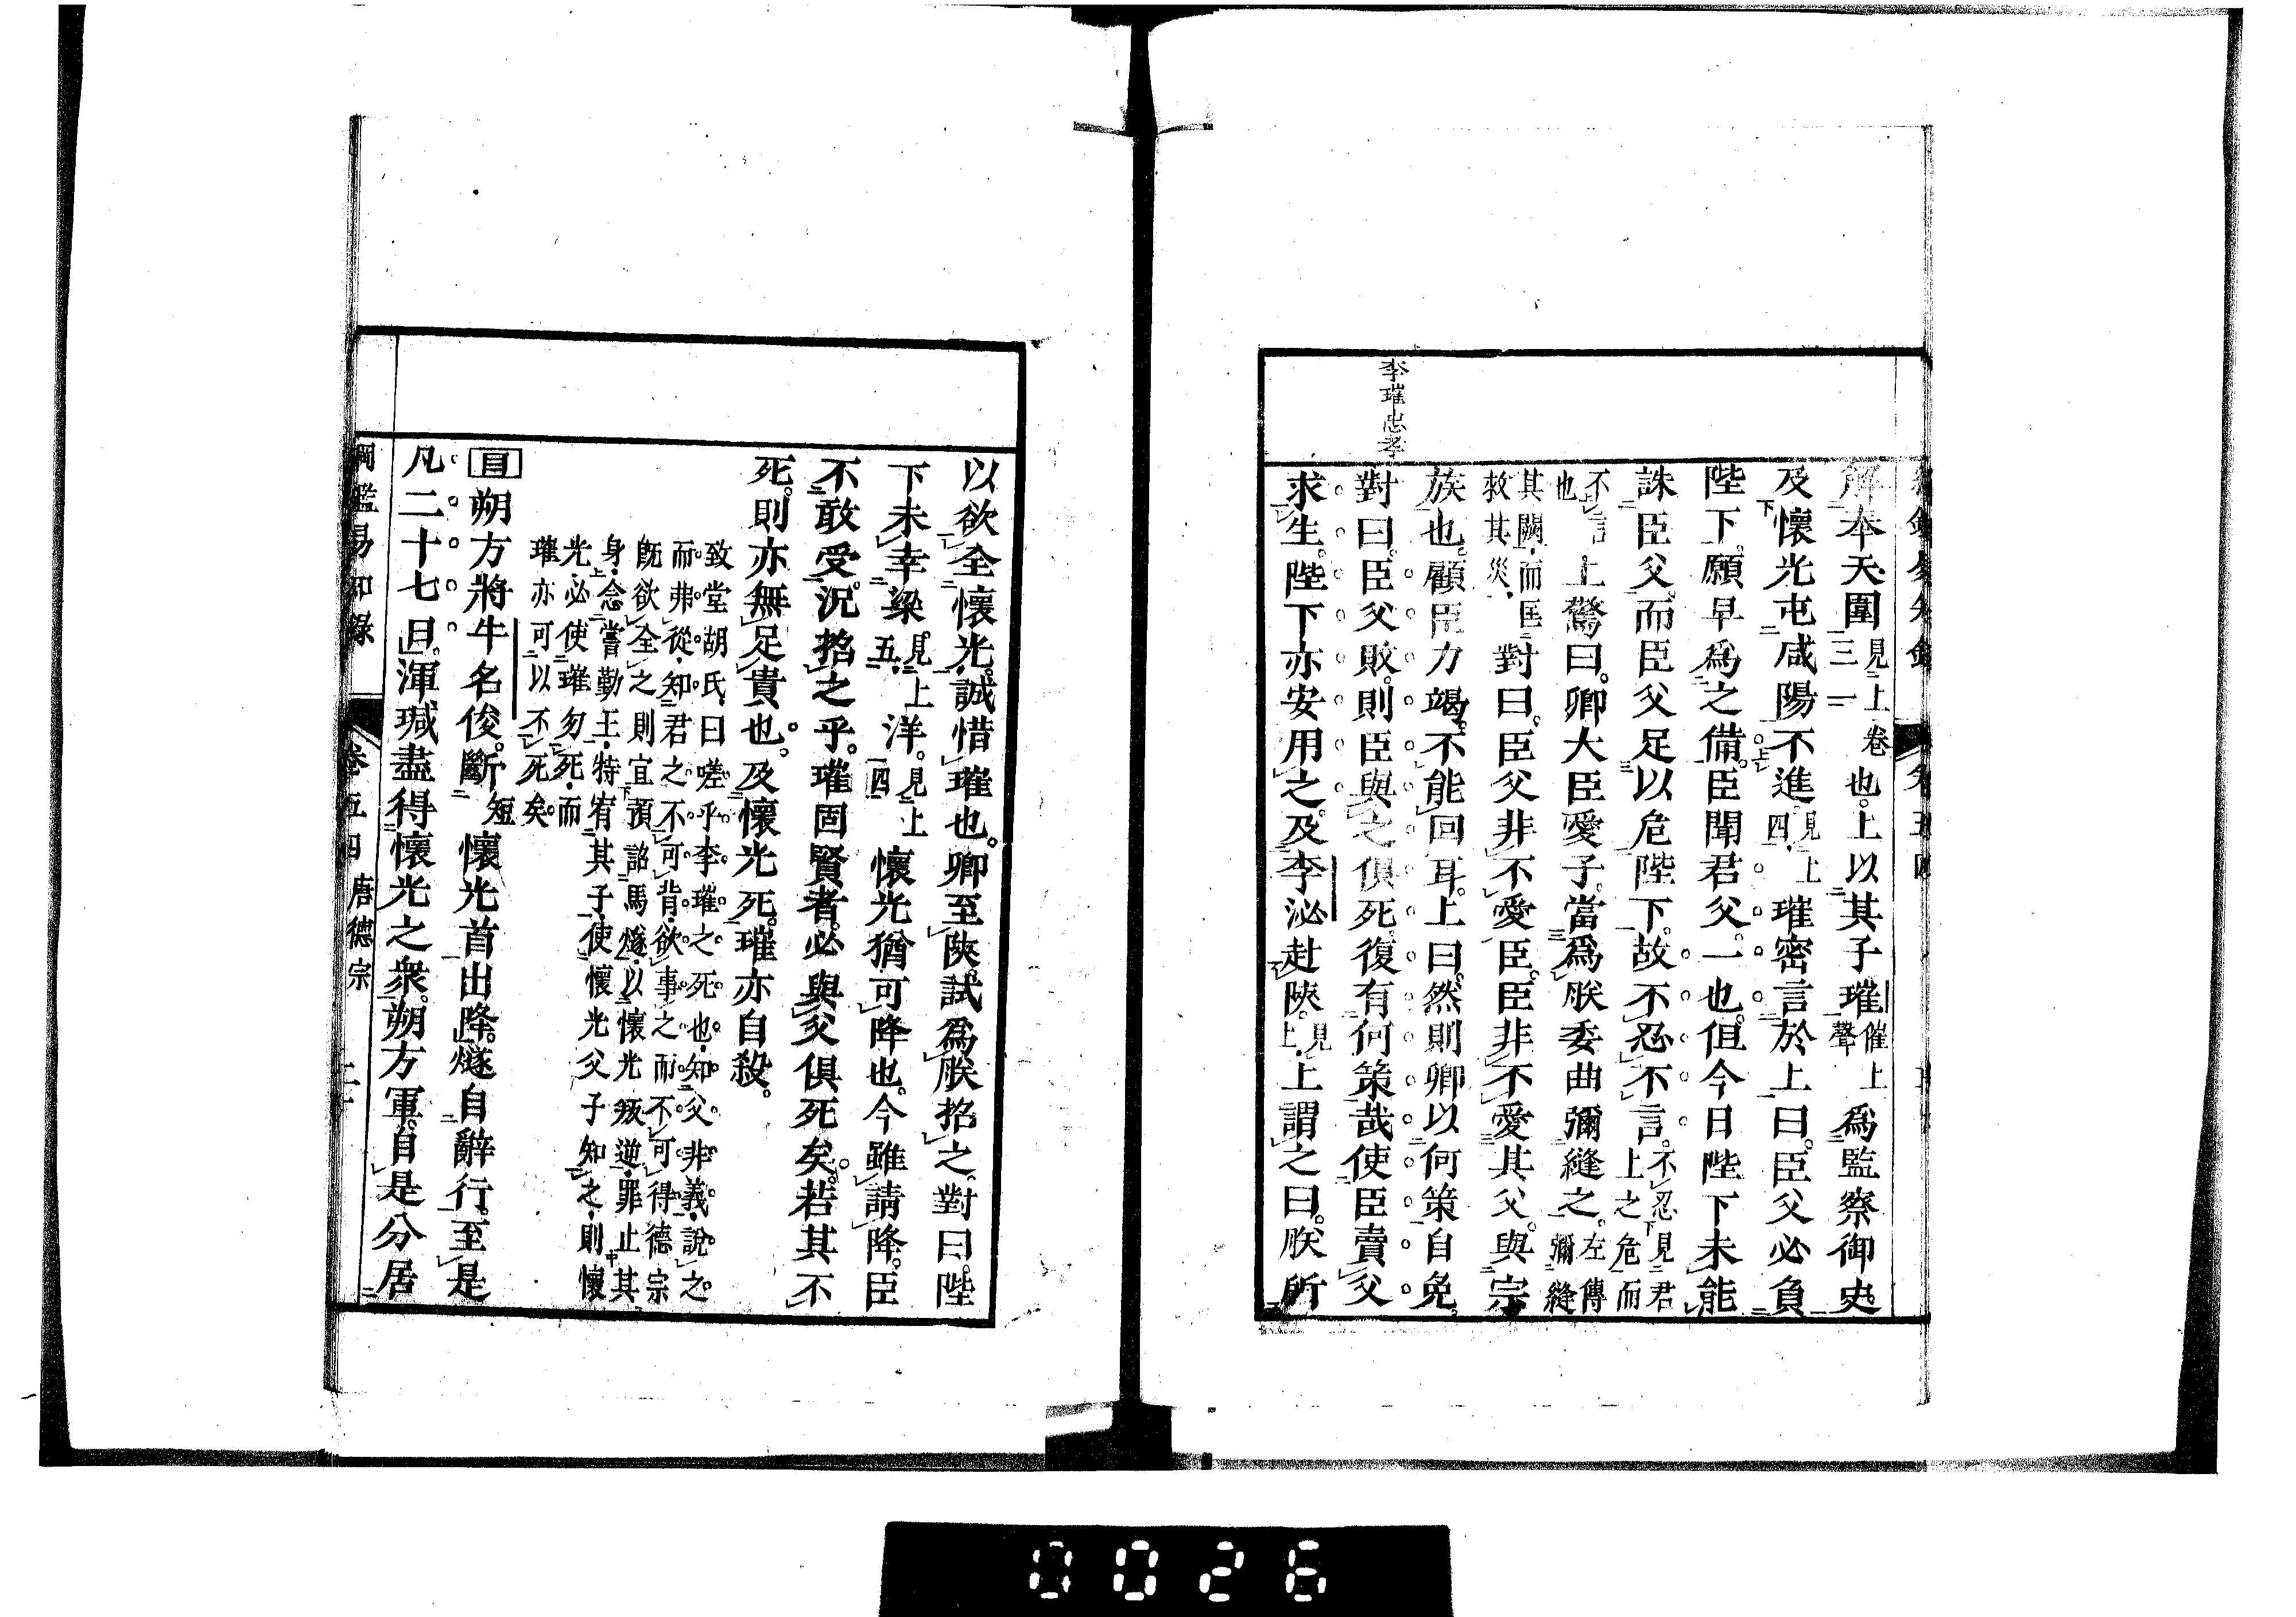 李璀忠孝
解奉天圍見上卷三一也上以其子璀催上聲爲監察御史
及懷光屯咸陽不進見上四璀密言於上曰臣父必負
陛下願早爲之備臣聞君父一也但今日陛下未能
誅臣父而臣父足以危陛下故不忍不言不忍見君上之危而
不言也上驚曰卿大臣愛子當爲朕委曲彌縫之左傳彌縫
其闕而匡救其災對曰臣父非不愛臣臣非不愛其父與宗
族也顧臣力竭不能回耳上曰然則卿以何策自免
對曰臣父敗則臣與之俱死復有何策哉使臣賣父
求生陛下亦安用之及李泌赴陝見上上謂之曰朕所
以欲全懷光誠惜璀也卿至陝試爲朕招之對曰陛
下未幸梁見上五洋見上四懷光猶可降也今雖請降臣
不敢受況招之乎璀固賢者必與父俱死矣若其不
死則亦無足貴也及懷光死璀亦自殺
致堂胡氏曰嗟乎李璀之死也知父非義說之
而弗從知君之不可背欲事之而不可得德宗
旣欲全之則宜預詔馬燧以懷光叛逆罪止其
身念嘗勤王特宥其子使懷光父子知之則懷
光必使璀勿死而
璀亦可以不死矣
目朔方將牛名俊斷短懷光首出降燧自辭行至是
凡二十七日渾瑊盡得懷光之衆朔方軍自是分居
綱鑑易知錄 卷五四 唐德宗 二十